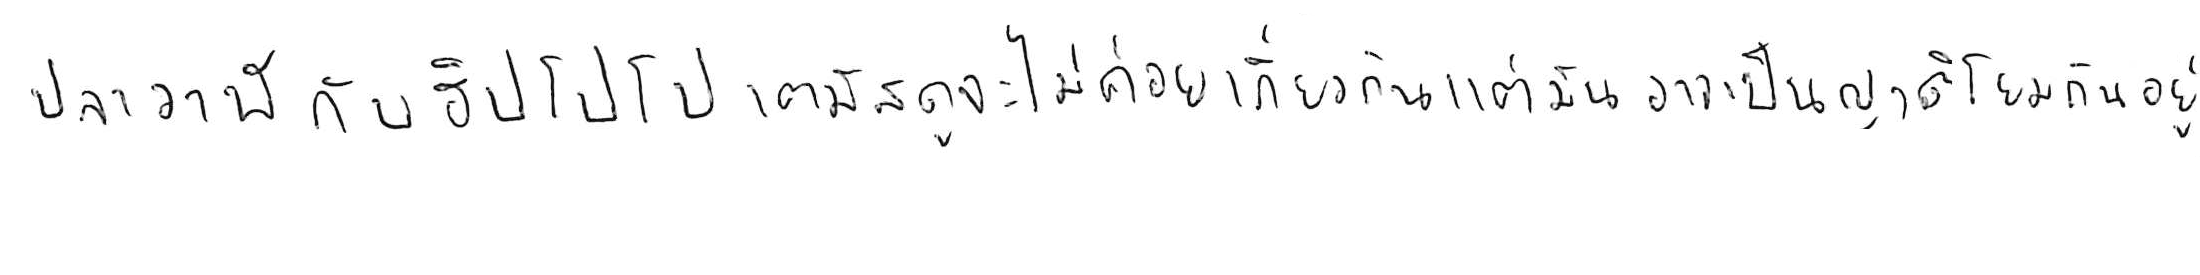 ปลาวาฬ กับ ฮิปโปโป เตมัสดูจะไม่ค่อยเกี่ยวกันแต่มัน อาจเป็นญาติโยมกันอยู่